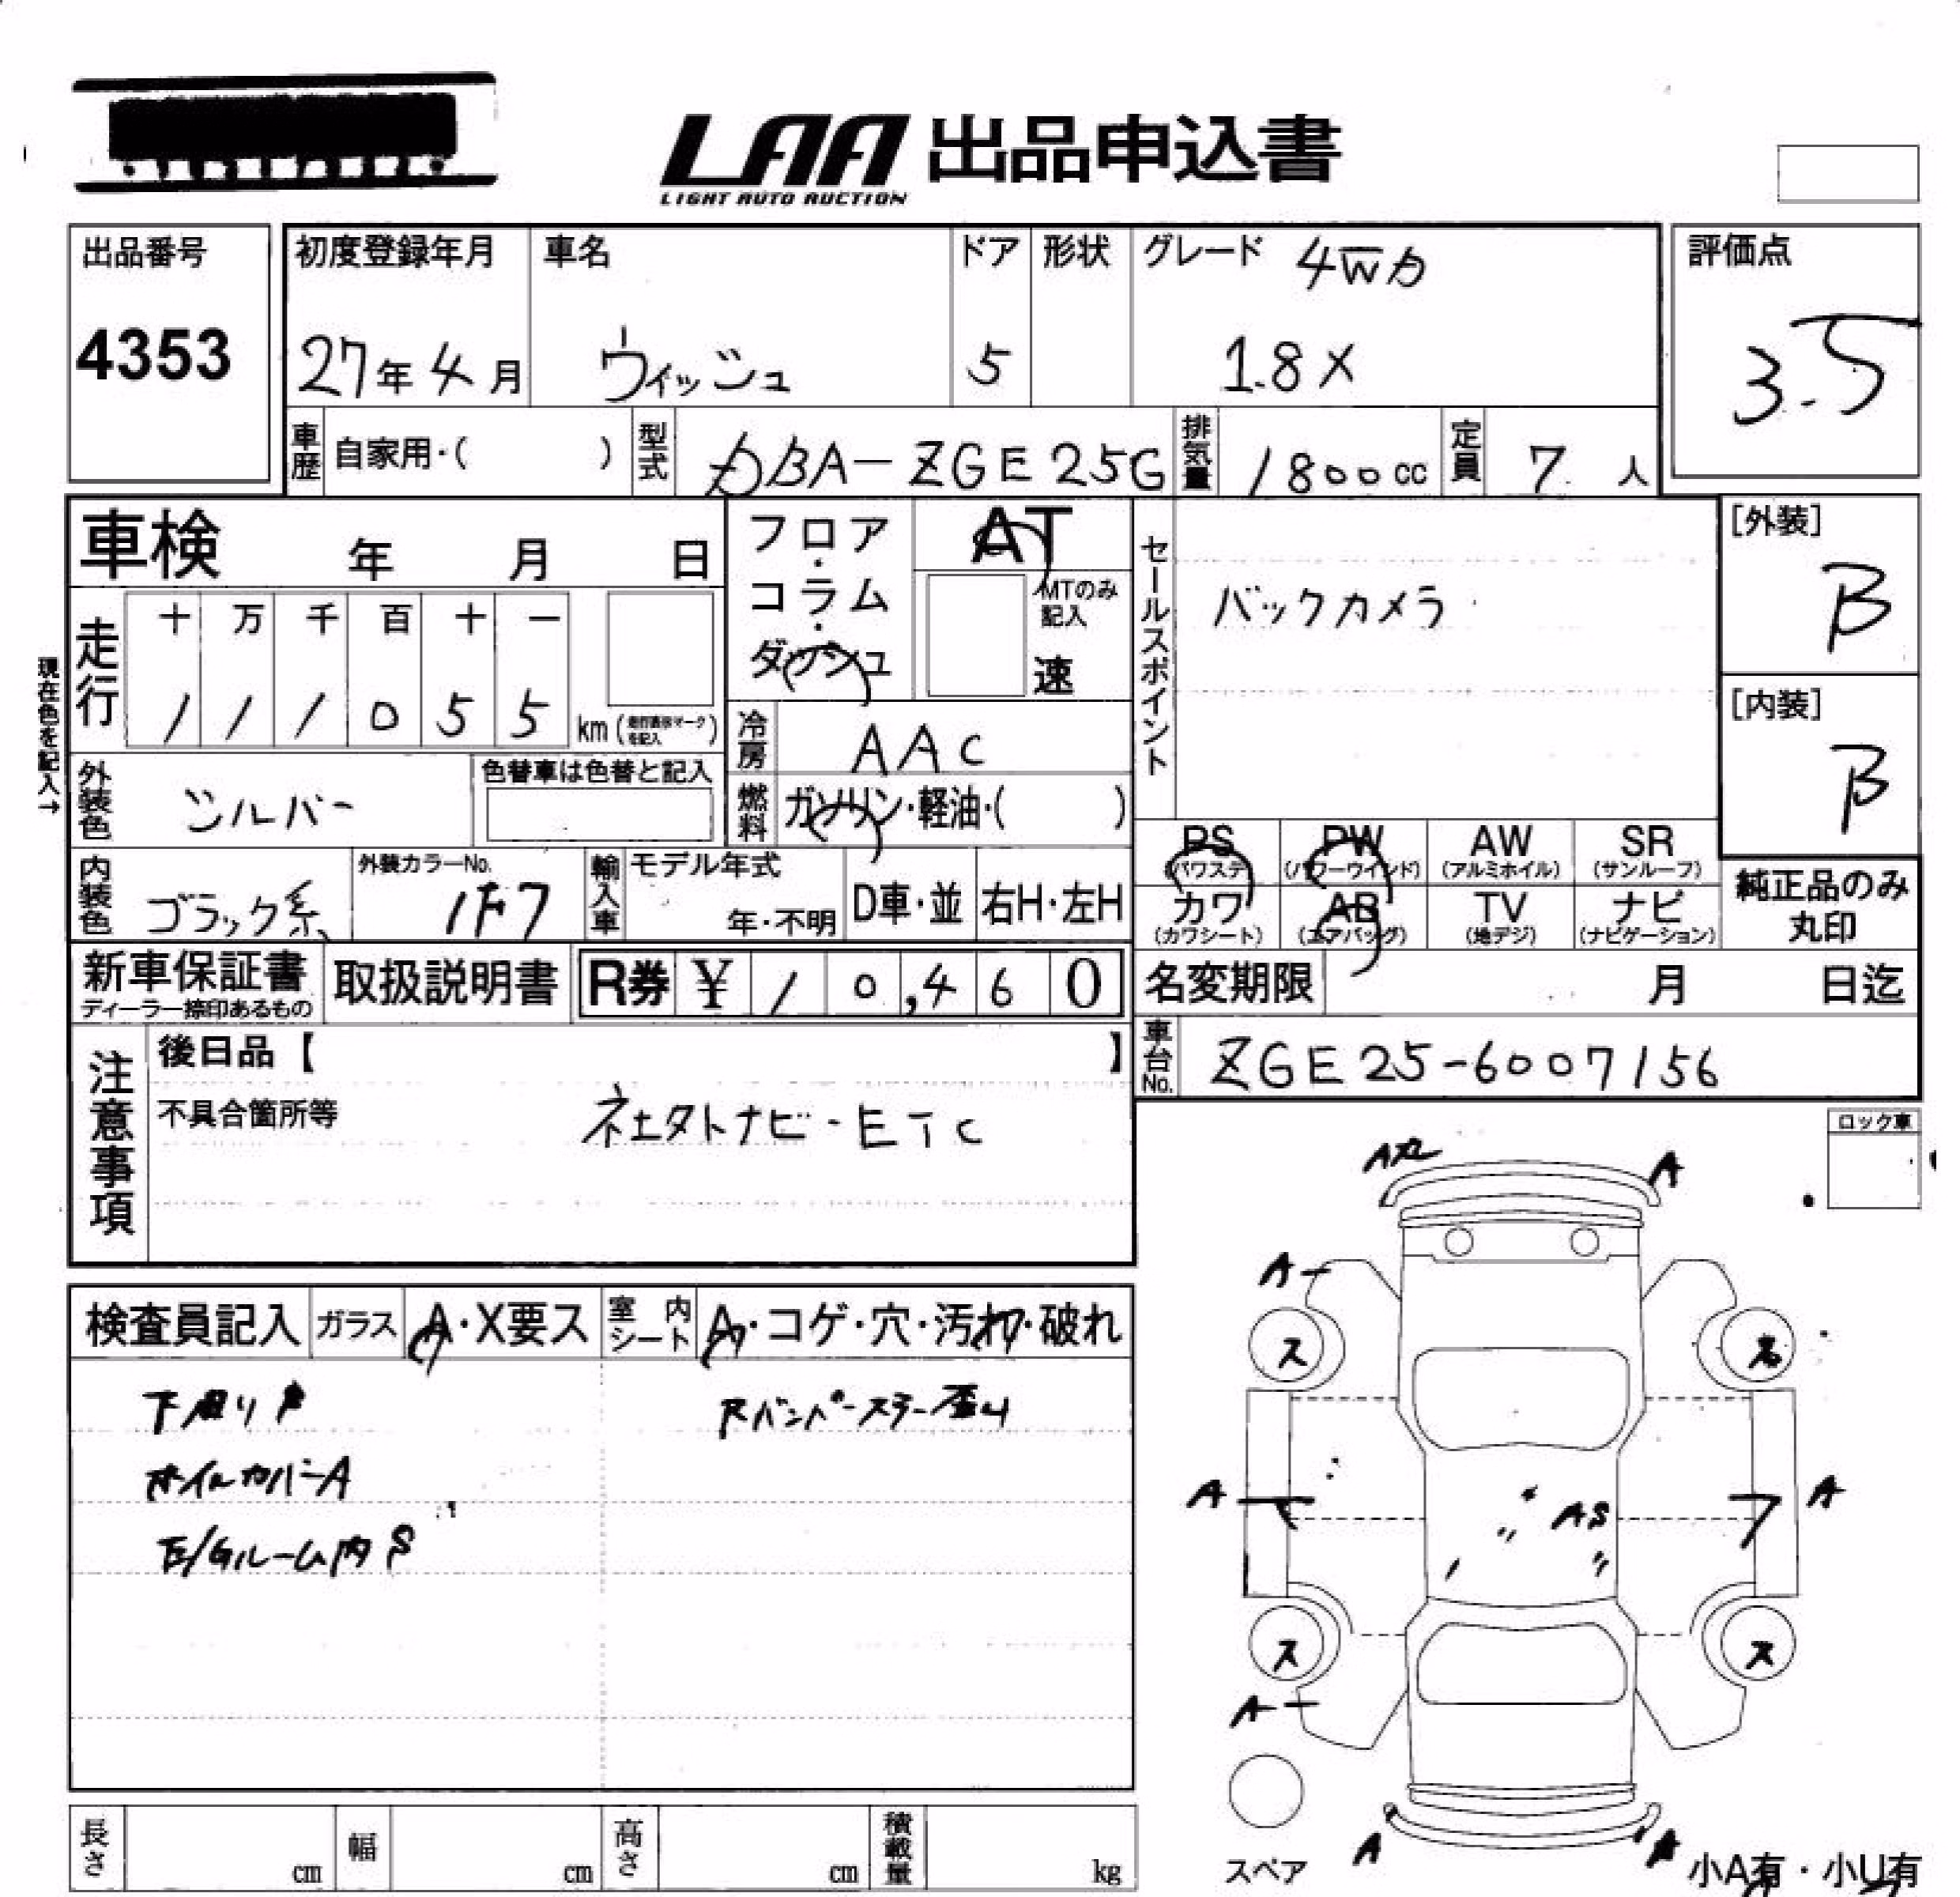 LAA 出品申込書
LIGHT AUTO AUCTION
出品番号
4353
初度登録年月
27年4月
車名
ウィッシュ
ドア
5
形状
グレード 4WD
1.8X
評価点
3.5
車歴 自家用・( )
型式 DBA-ZGE25G
排気量 1800cc
定員 7人
車検 年 月 日
現在色を記入→
走行 十 万 千 百 十 一
1 1 1 0 5 5 km
フロア・コラム・ダッシュ
AT
MTのみ記入
速
冷房 AAC
燃料 ガソリン・軽油・( )
セールスポイント
バックカメラ
[外装]
B
[内装]
B
外装色 シルバー
色替車は色替と記入
内装色 ブラック系
外装カラーNo.
1F7
輸入車 モデル年式
年・不明
D車・並 右H・左H
PS (パワステ)
PW (パワーウインド)
AW (アルミホイル)
SR (サンルーフ)
カワ (カワシート)
AB (エアバッグ)
TV (地デジ)
ナビ (ナビゲーション)
純正品のみ
丸印
新車保証書
ディーラー捺印あるもの
取扱説明書
R券 ¥ 10,460
名変期限 月 日迄
車台No. ZGE25-6007156
注意事項
後日品【 】
不具合箇所等
社外ナビ・ETC
ロック車
検査員記入 ガラス A・X要ス
室内シート A・コゲ・穴・汚れ・破れ
下廻りS
ホイルカバーA
E/Gルーム内S
A
A
A
ス
A
AS
A
ス
ス
A
A
スペア
小A有・小U有
長さ cm
幅 cm
高さ cm
積載量 kg